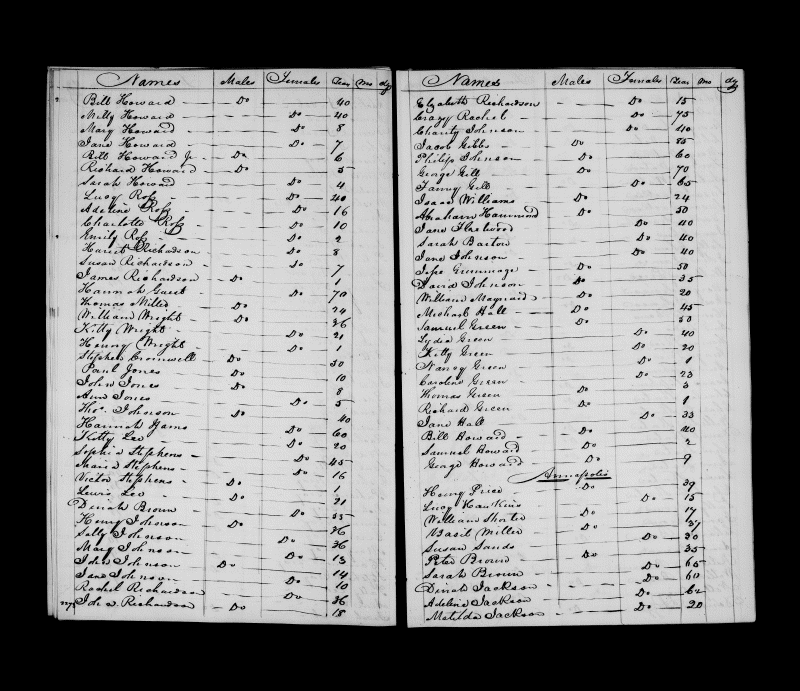 Names Males Females Year Mo dy
Bill Howard Do 40
Milly Howard Do 40
Mary Howard Do 8
Jane Howard Do 7
Bill Howard Jr Do 6
Richard Howard Do 5
Sarah Howard Do 4
Lucy Ross Do 40
Adeline Ross Do 16
Charlotte Ross Do 10
Emily Ross Do 2
Harriet Richardson Do 8
Susan Richardson Do 7
James Richardson Do 1
Hannah Guest Do 70
Thomas Miller Do 24
William Wright Do 36
Kitty Wright Do 21
Henny Wright Do 1
Stephen Cromwell Do 50
Paul Jones Do 10
John Jones Do 8
Ann Jones Do 5
Thos. Johnson Do 40
Hannah Yams Do 60
Kitty Lee Do 20
Sophia Stephens Do 45
Maria Stephens Do 16
Victor Stephens Do 1
Lewis Lee Do 21
Dinah Brown Do 55
Henry Johnson Do 36
Sally Johnson Do 36
Mary Johnson Do 13
John Johnson Do 14
Jane Johnson Do 10
Rachel Richardson Do 36
John Richardson Do 18
Names Males Females Year Mo dy
Elizabeth Richardson Do 15
Crazy Rachel Do 75
Charity Johnson Do 40
Jacob Gibbs Do 85
Philip Johnson Do 60
George Gill Do 70
Fanny Gill Do 65
Isaac Williams Do 24
Abraham Hammond Do 50
Jane Hazelwood Do 40
Sarah Barton Do 40
Jane Johnson Do 40
Jesse Gummage Do 50
David Johnson Do 35
William Maynard Do 20
Michael Hall Do 45
Samuel Green Do 50
Lydia Green Do 40
Kitty Green Do 20
Nancy Green Do 1
Caroline Green Do 23
Thomas Green Do 3
Richard Green Do 1
Jane Hall Do 33
Bill Howard Do 40
Samuel Howard Do 2
George Howard Do 9
Annapolis
Henry Price Do 39
Lucy Hawkins Do 15
William Shorter Do 17
Basil Miller Do 37
Susan Sands Do 30
Peter Brown Do 35
Sarah Brown Do 65
Dinah Jackson Do 60
Adeline Jackson Do 62
Matilda Jackson Do 20